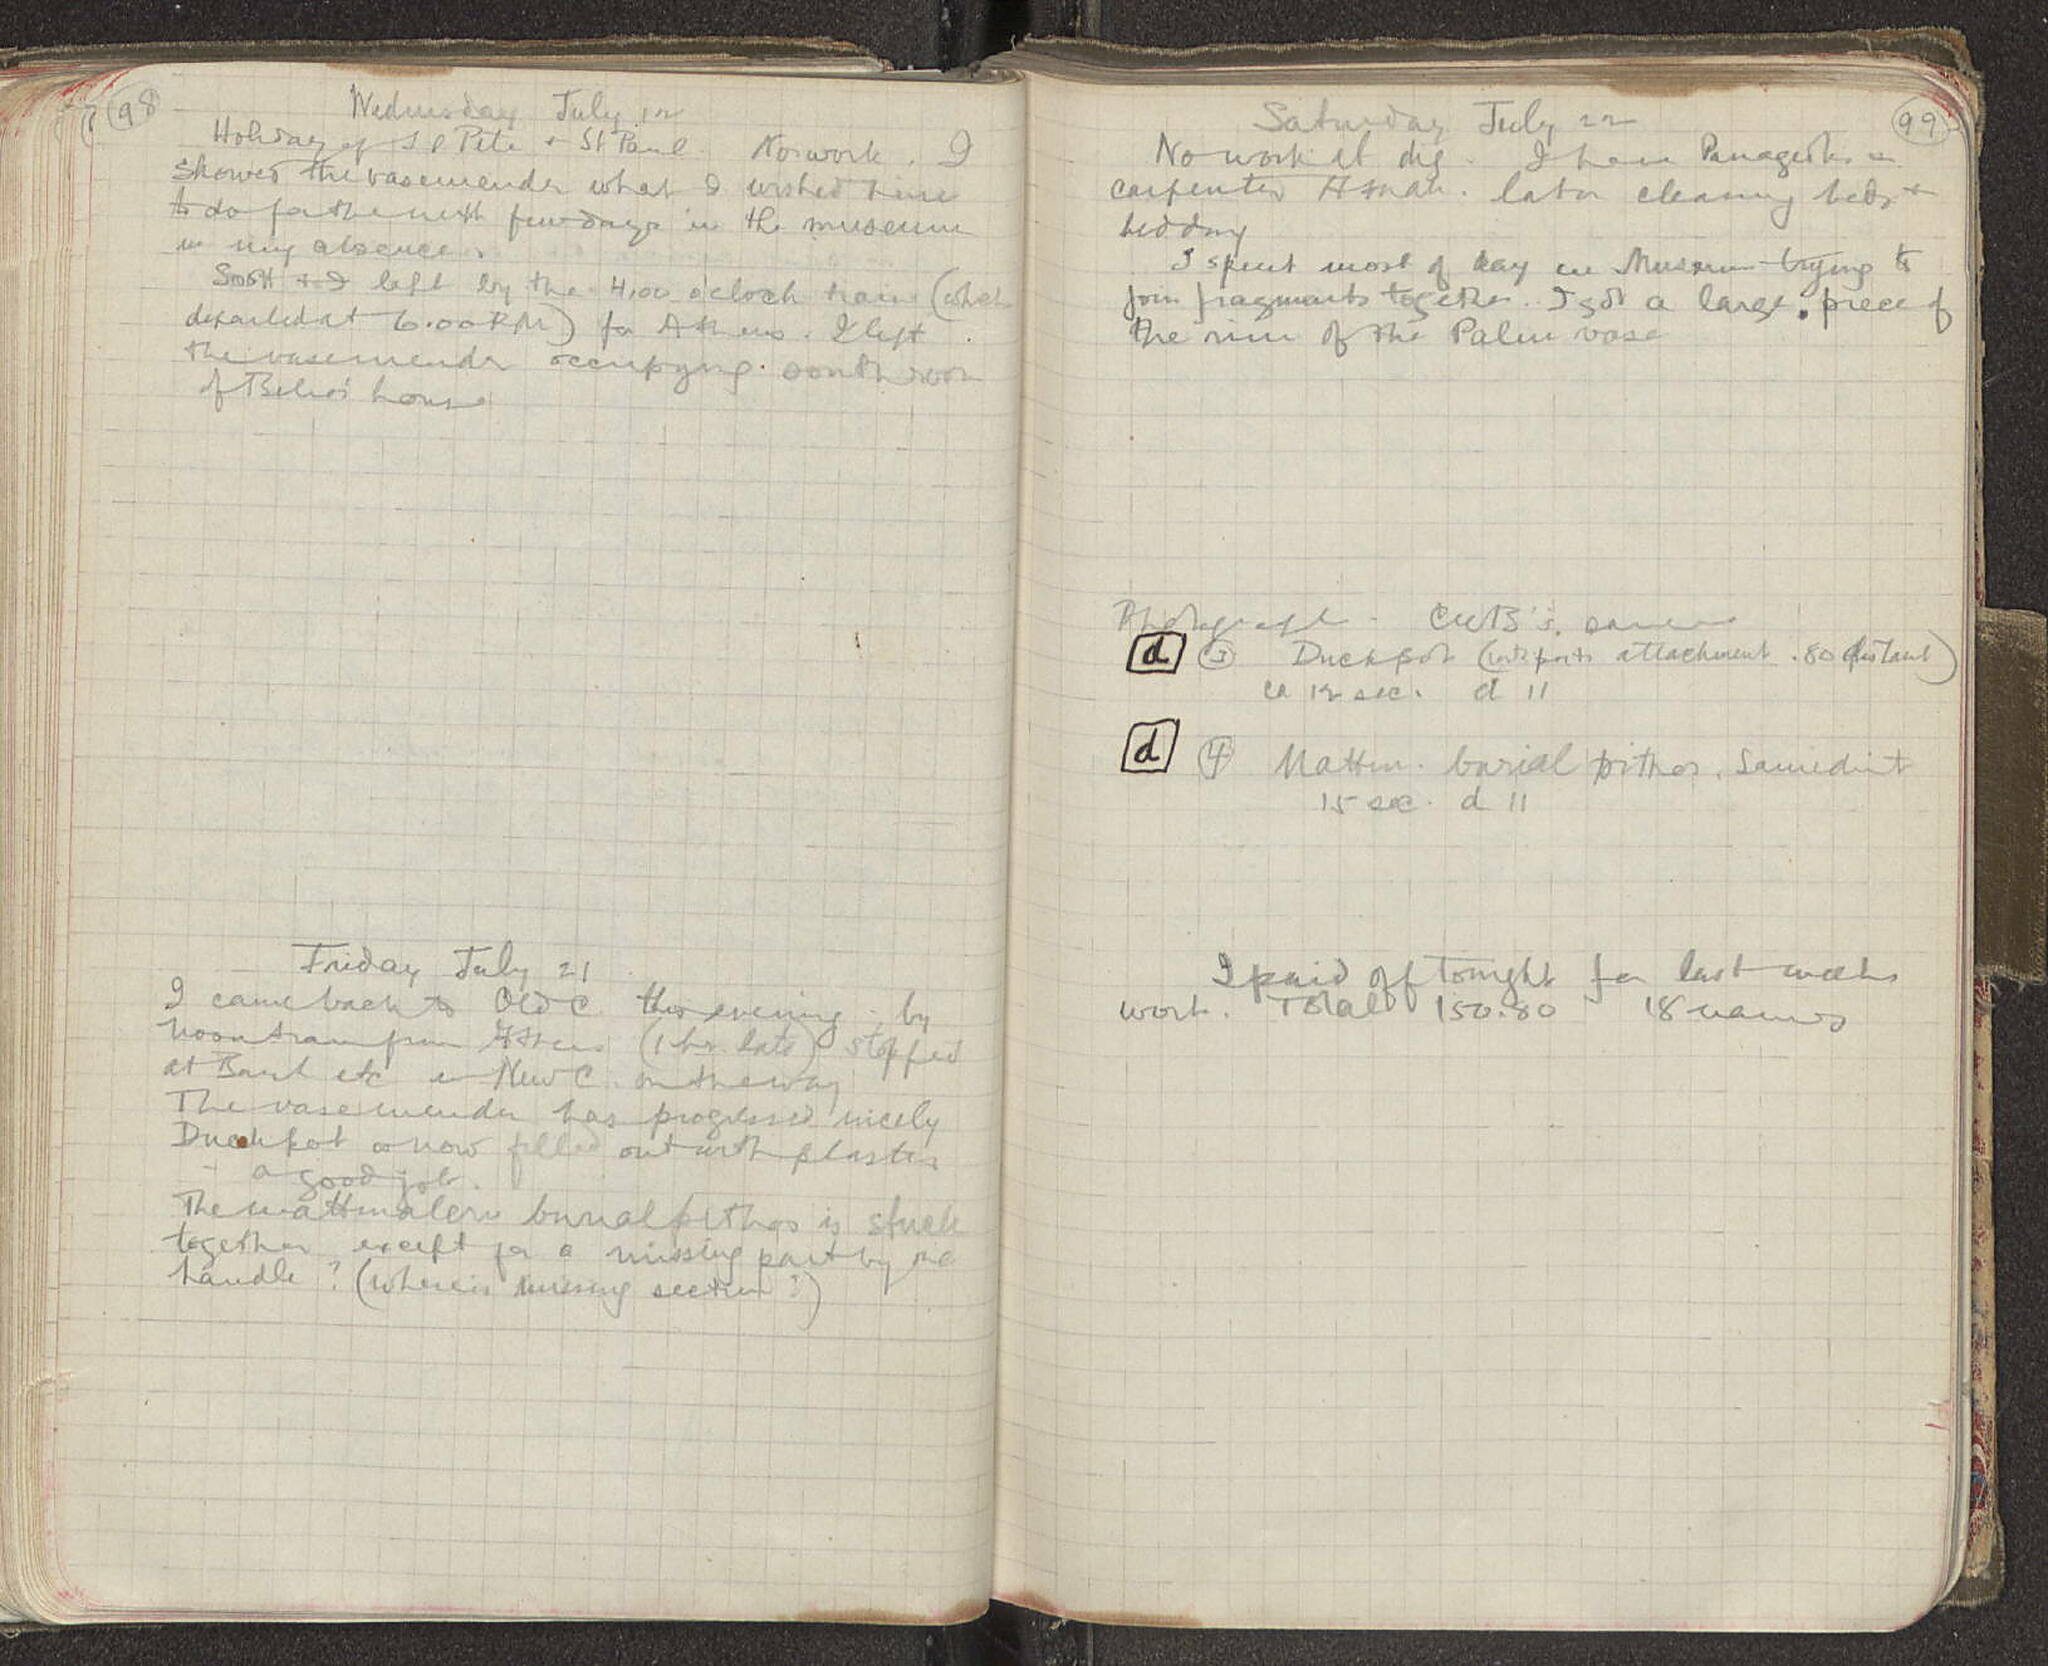 98
Wednesday July 12
Holiday of St Pete + St Paul. No work. I
showed the vasemender what I wished him
to do for the next few days in the museum
in my absence.
+ I left by the 4.00 o'clock train (which
departed at 6.00 P.M) for Athens. I left
the vasemender occupying south room
of house
Friday July 21
I came back to Old C. this evening by
noon train from Athens (1 hr. late) stopped
at Bank etc in New C. on the way
The vasemender has progressed nicely
Duckpot is now filled out with plaster
- a good job.
The mattmalerei burial pithos is stuck
together except for a missing part by one
handle? (Where is missing section?)
99
Saturday July 22
No work at dig. I have Panagiotis
carpenter later cleaning beds +
bedding
I spent most of day in Museum trying to
join fragments together. I got a large piece of
the rim of the Palm vase
Photograph - CWB's camera
d 3 Duckpot (with attachment .80 distant)
ca 12 sec. d 11
d 4 Mattm. burial pithos. Same dist
15 sec. d 11
I paid off tonight for last weeks
work. Total 150.80 18 names